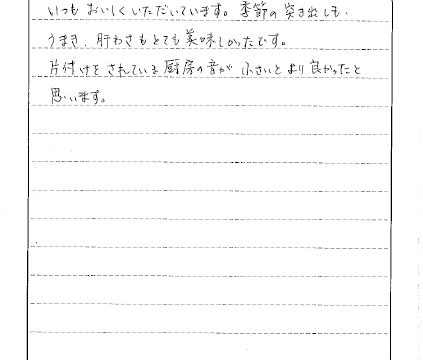 いつもおいしくいただいています。季節の突き出しも、
うまき、肝わさもとても美味しかったです。
片付けをされている厨房の音が ふさいとより良かったと
思います。